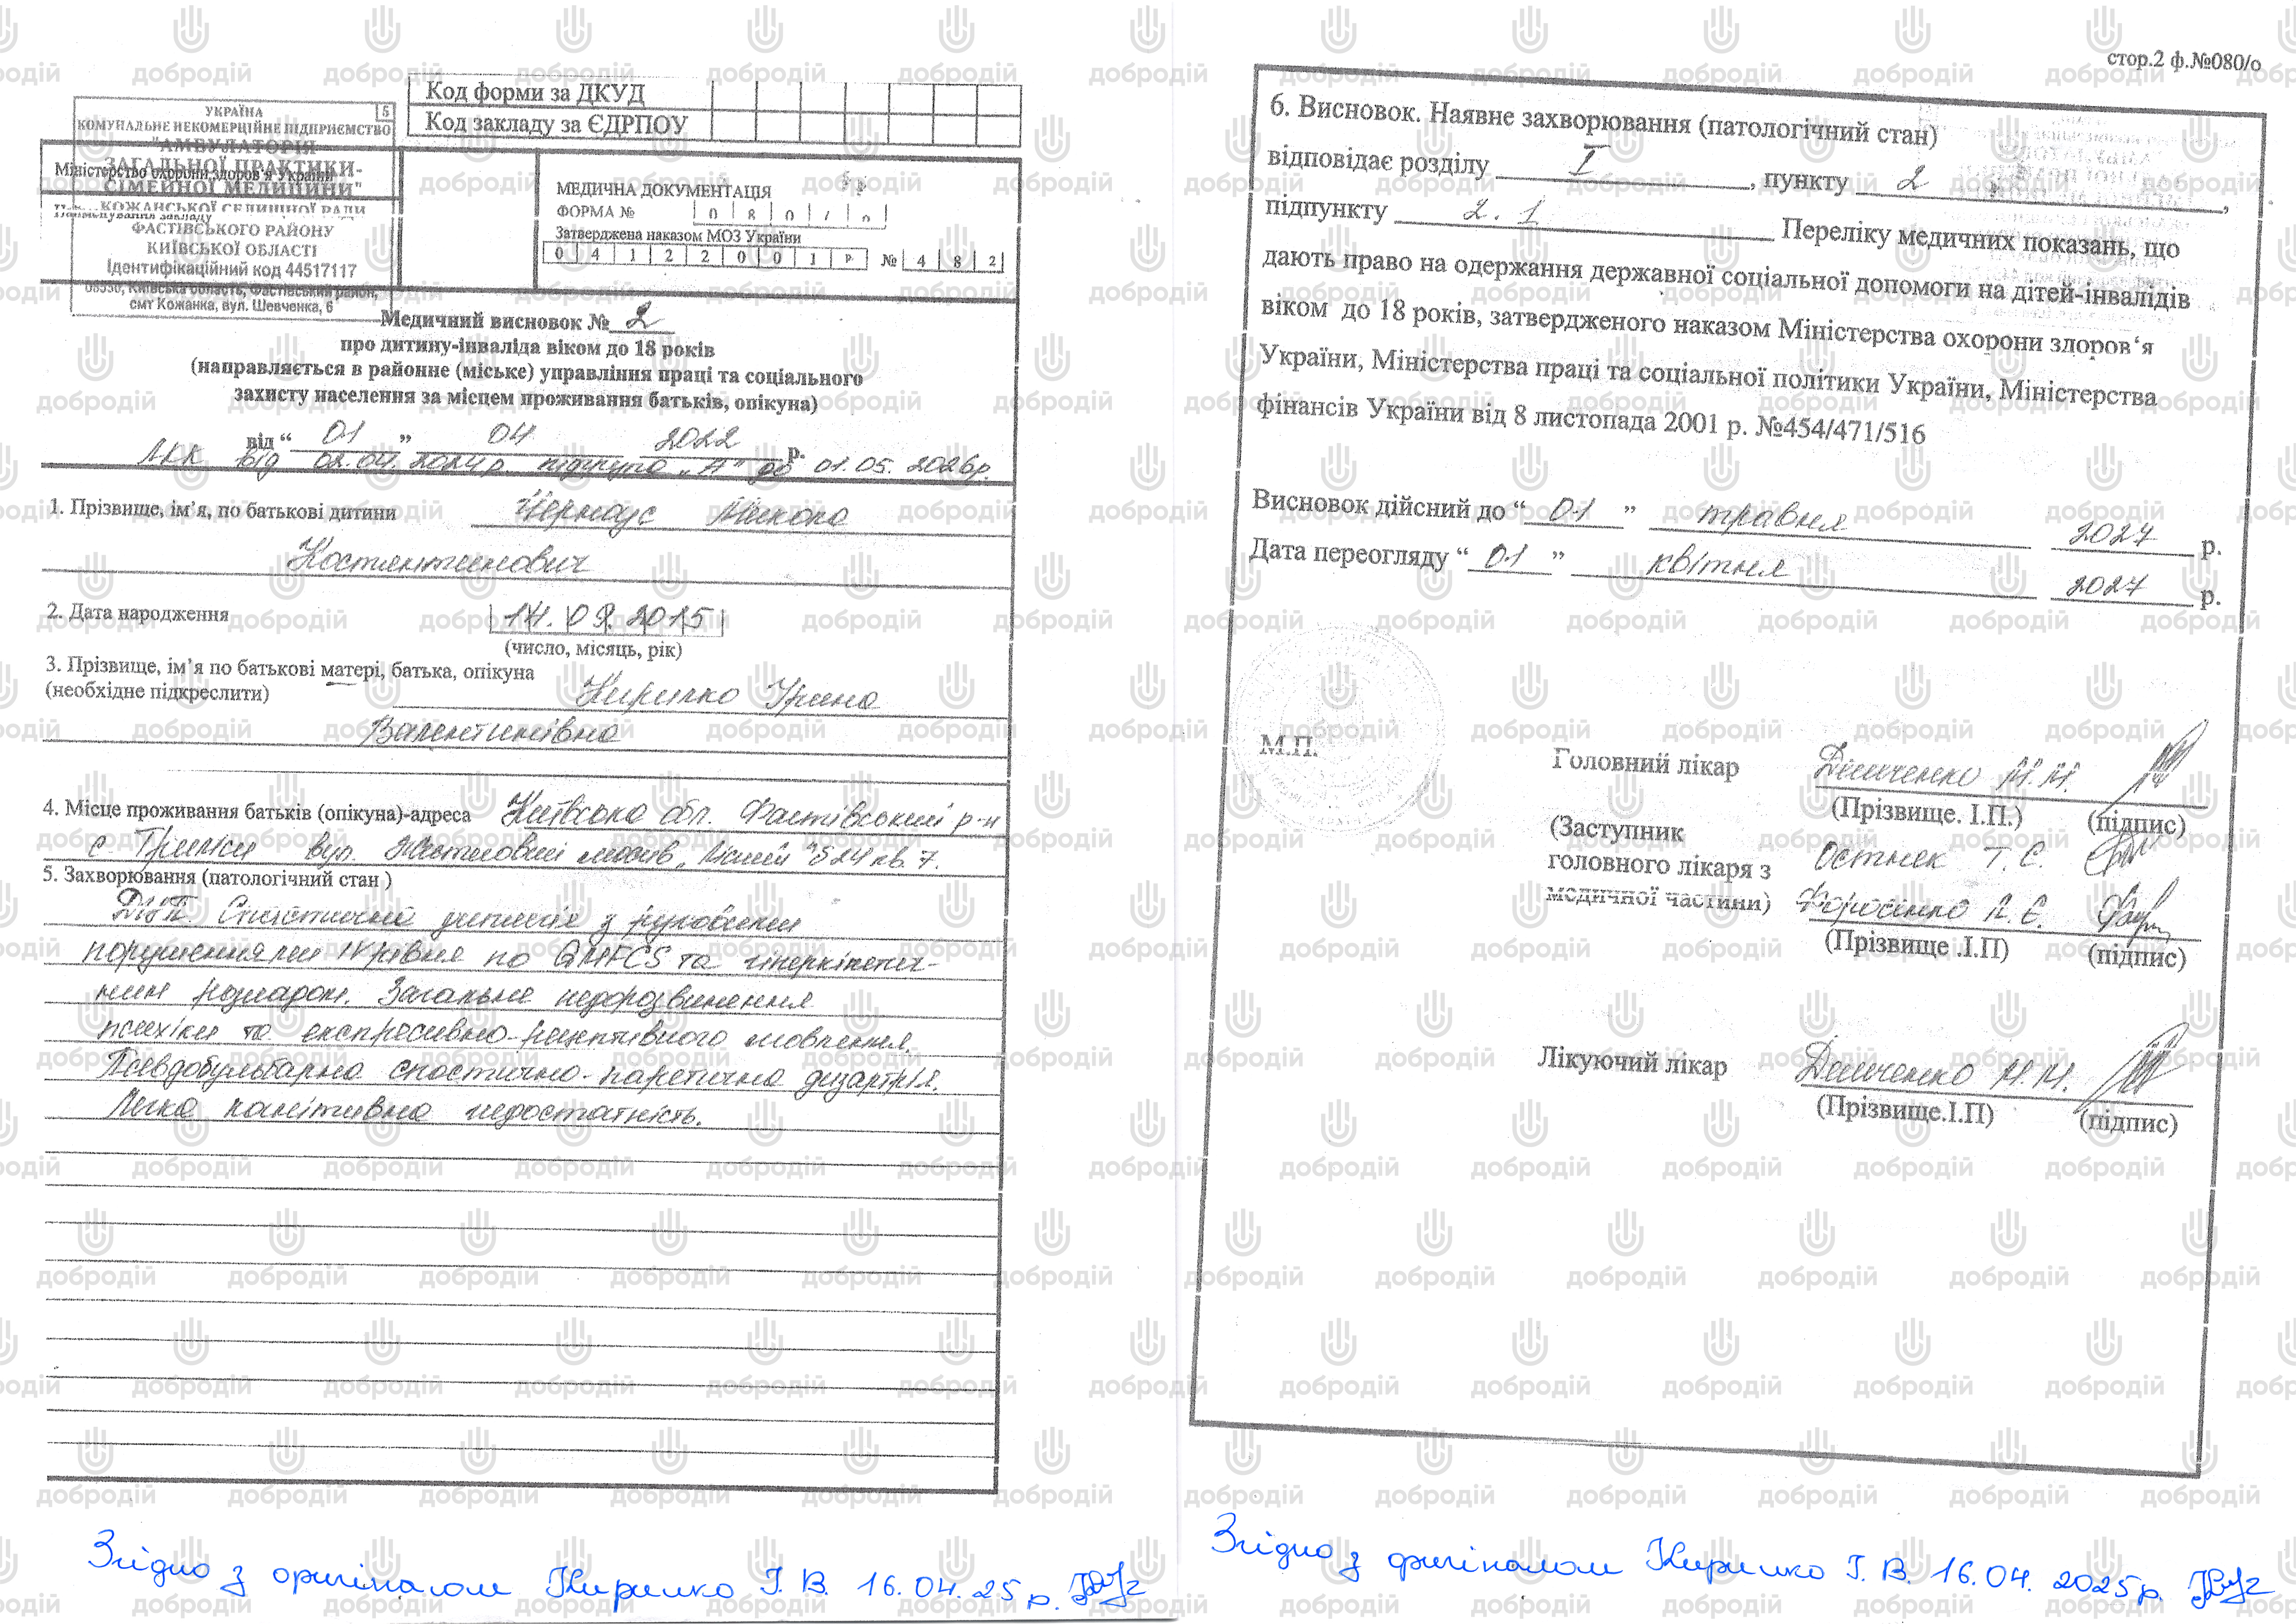 Код форми за ДКУД
Код закладу за ЄДРПОУ
УКРАЇНА 5
КОМУНАЛЬНЕ НЕКОМЕРЦІЙНЕ ПІДПРИЄМСТВО
"АМБУЛАТОРІЯ
ЗАГАЛЬНОЇ ПРАКТИКИ-
СІМЕЙНОЇ МЕДИЦИНИ"
КОЖАНСЬКОЇ СЕЛИЩНОЇ РАДИ
ФАСТІВСЬКОГО РАЙОНУ
КИЇВСЬКОЇ ОБЛАСТІ
Ідентифікаційний код 44517117
08550, Київська область, Фастівський район,
смт Кожанка, вул. Шевченка, 6
Міністерство охорони здоров'я України
Найменування закладу
МЕДИЧНА ДОКУМЕНТАЦІЯ
ФОРМА № 0 8 0 / о
Затверджена наказом МОЗ України
0 4 1 2 2 0 0 1 р № 4 8 2
Медичний висновок № 2
про дитину-інваліда віком до 18 років
(направляється в районне (міське) управління праці та соціального
захисту населення за місцем проживання батьків, опікуна)
від “ 01 ” 04 2022 р.
ЛКК від 02.04.2024р підгрупа „А" до 01.05.2026р.
1. Прізвище, ім’я, по батькові дитини Микола
Костянтинович
2. Дата народження 14.09.2015
(число, місяць, рік)
3. Прізвище, ім’я по батькові матері, батька, опікуна
(необхідне підкреслити) Кирилко Ірина
Валентинівна
4. Місце проживання батьків (опікуна)-адреса Київська обл. Фастівський р-н
с Триліси вул. Житловий масив „Лісний" б 24 кв. 7.
5. Захворювання (патологічний стан )
ДЦП. Спастичний диплегія з руховими
порушеннями IV рівня по GMFCS та гіперкінетич-
ним розладом. Загальне недорозвинення
психіки та експресивно-рецептивного мовлення.
Псевдобульбарна спастично-паретична дизартрія.
Легка когнітивна недостатність.
Згідно з оригіналом Кирилко І. В. 16.04.25р.
стор.2 ф.№080/о
6. Висновок. Наявне захворювання (патологічний стан)
відповідає розділу I , пункту 2 ,
підпункту 2.1 Переліку медичних показань, що
дають право на одержання державної соціальної допомоги на дітей-інвалідів
віком до 18 років, затвердженого наказом Міністерства охорони здоров‘я
України, Міністерства праці та соціальної політики України, Міністерства
фінансів України від 8 листопада 2001 р. №454/471/516
Висновок дійсний до “ 01 ” травня 2027 р.
Дата переогляду “ 01 ” квітня 2027 р.
М.П.
Головний лікар Демченко М.М.
(Прізвище. І.П.) (підпис)
(Заступник
головного лікаря з Остнек Т. Є.
медичної частини) Л. Є.
(Прізвище .І.П) (підпис)
Лікуючий лікар Демченко М.М.
(Прізвище.І.П) (підпис)
Згідно з оригіналом Кирилко І. В. 16.04. 2025р.
добродій